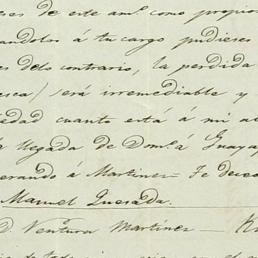 ses de este aml. como propios
andolos á tu cargo pudieses
es delo contrario, la perdida
esca/ será irremediable y
iedad cuanto esta á mi a
llegada de Domla Guaya
erando á Martinez = Te dese
Manuel Quesada.
D Ventura Martinez —